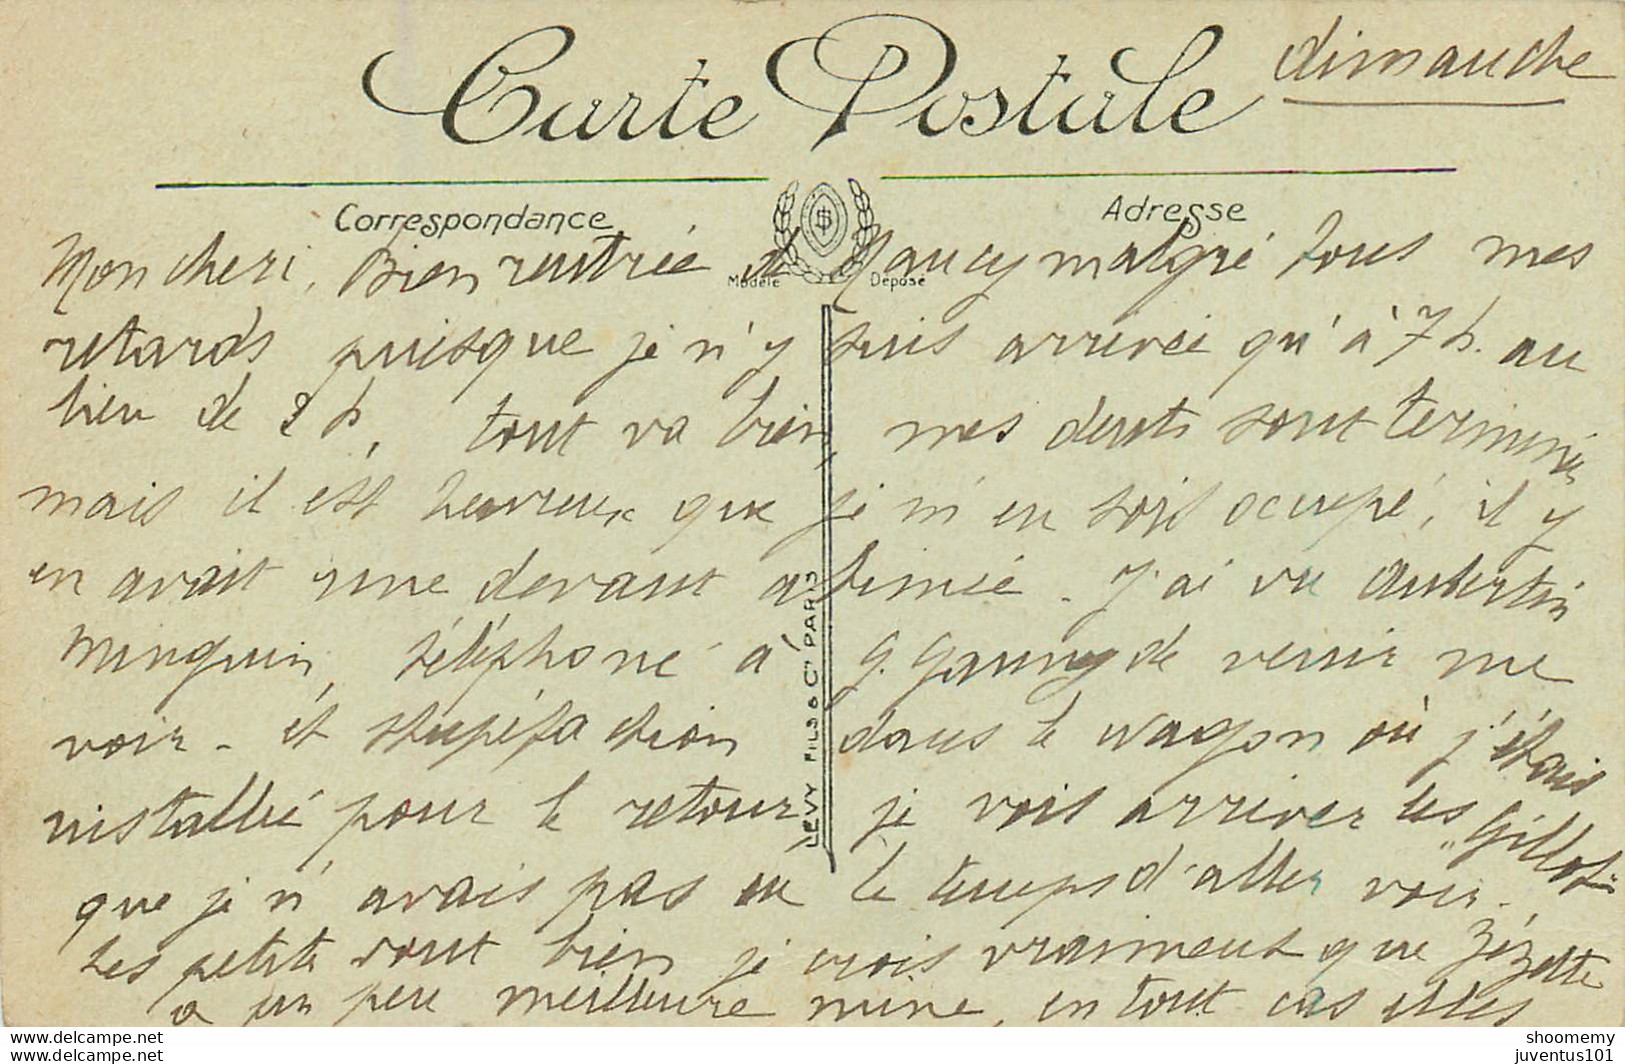 Carte Postale
dimanche
Correspondance
Adresse
Modèle Déposé
Mon cheri. Bien rentrée de Nancy malgré tous mes
retards puisque je n'y suis arrivée qu'à 7 h. au
lieu de 2 h, tout va bien, mes dents sont terminées
mais il est heureux que je m'en sois occupé, il y
en avait une devant abimée. J'ai vu Aubertin
Minguin, téléphoné à G. Ganny de venir me
voir - et stupéfaction dans le wagon où j'étais
installée pour le retour, je vois arriver les Gillot
que je n'avais pas eu le temps d'aller voir.
Les petits sont bien je crois vraiment que Zézette
a un peu meilleure mine, en tout cas elles
LEVY FILS & Cie PARIS
delcampe.net
shoomemy
juventus101